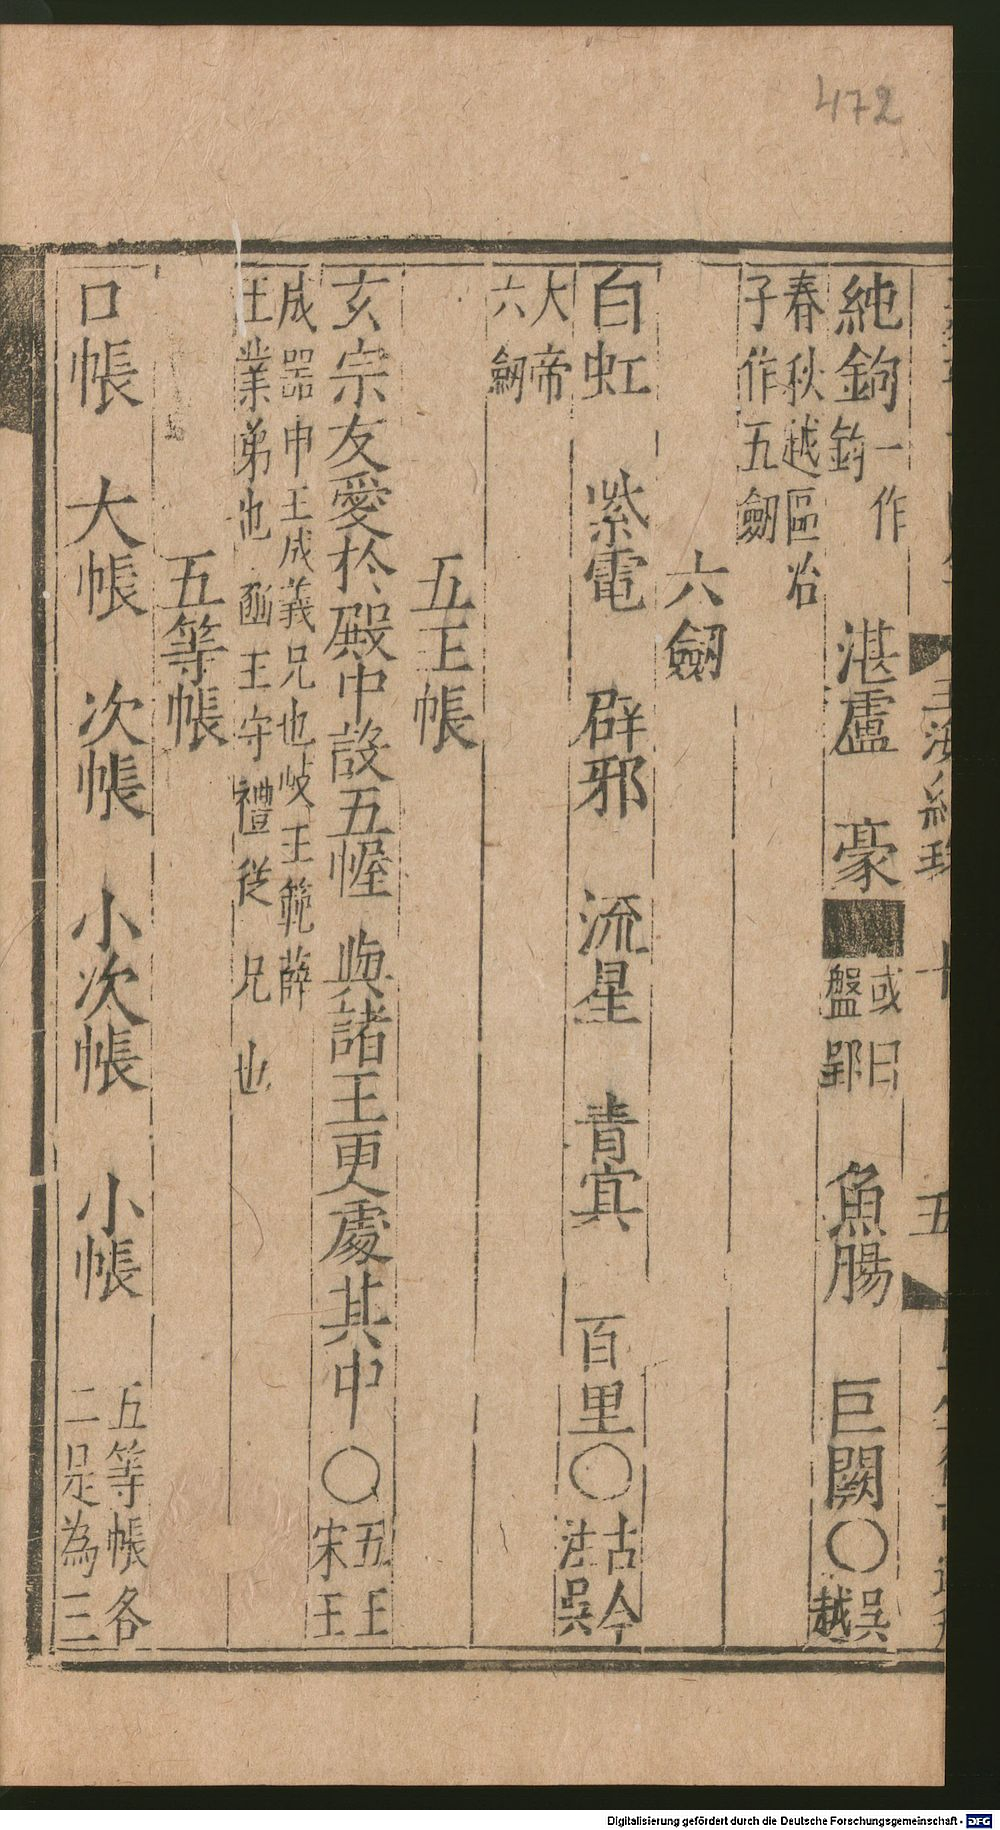 472
玉海紀珠 十 五
純鉤一作鈞 湛盧 豪 或曰盤郢 魚腸 巨闕○吳越
春秋越區冶子作五劒
六劒
白虹 紫電 辟邪 流星 青㝠 百里○古今注吳
大帝六劒
五王帳
玄宗友愛於殿中設五幄 與諸王更處其中○五王宋王
成器申王成義兄也岐王範薛王業弟也 豳王守禮從兄也
五等帳
口帳 大帳 次帳 小次帳 小帳 五等帳各二是為三
Digitalisierung gefördert durch die Deutsche Forschungsgemeinschaft - DFG